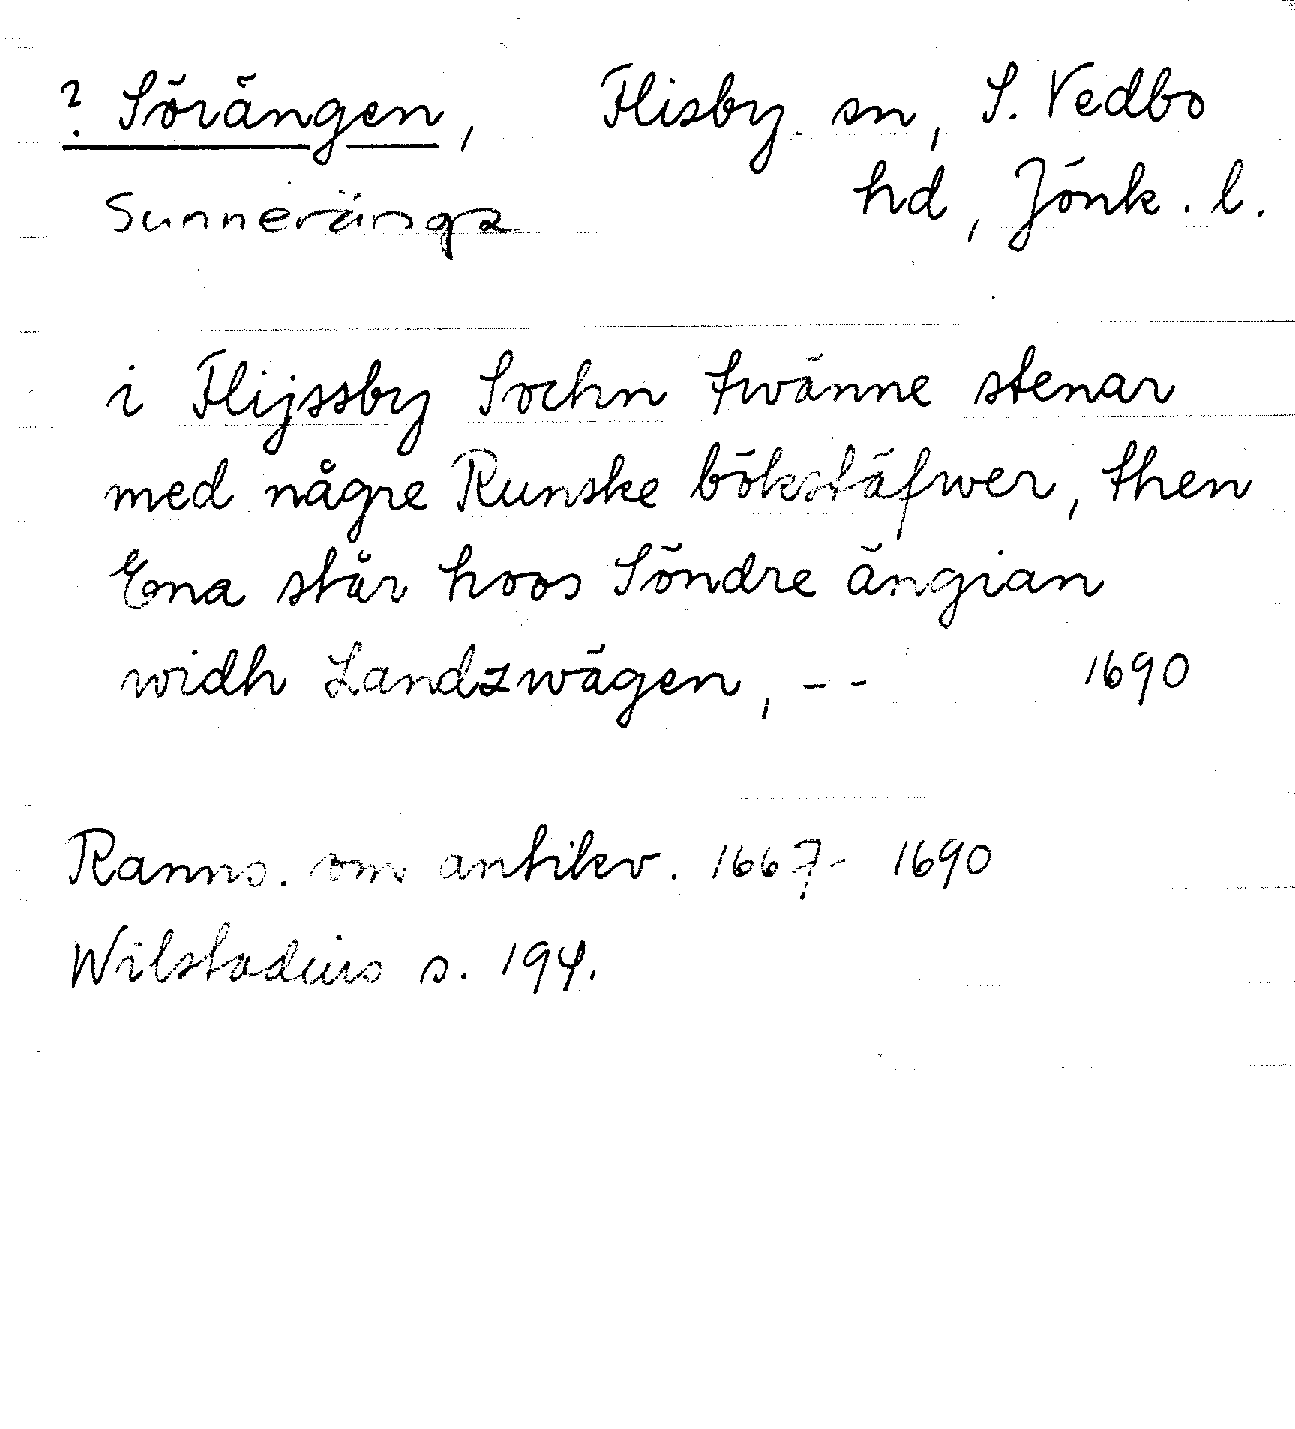 ? Sörängen, Flisby sn, S. Vedbo
Sunneränga hd, Jönk. l.
i Flijssby Sochn twänne stenar
med någre Runske bökstäfwer, then
Ena står hoos Söndre ängian
widh Landzwägen, -- 1690
Ranns. om antikv. 1667- 1690
Wilstadius s. 194.